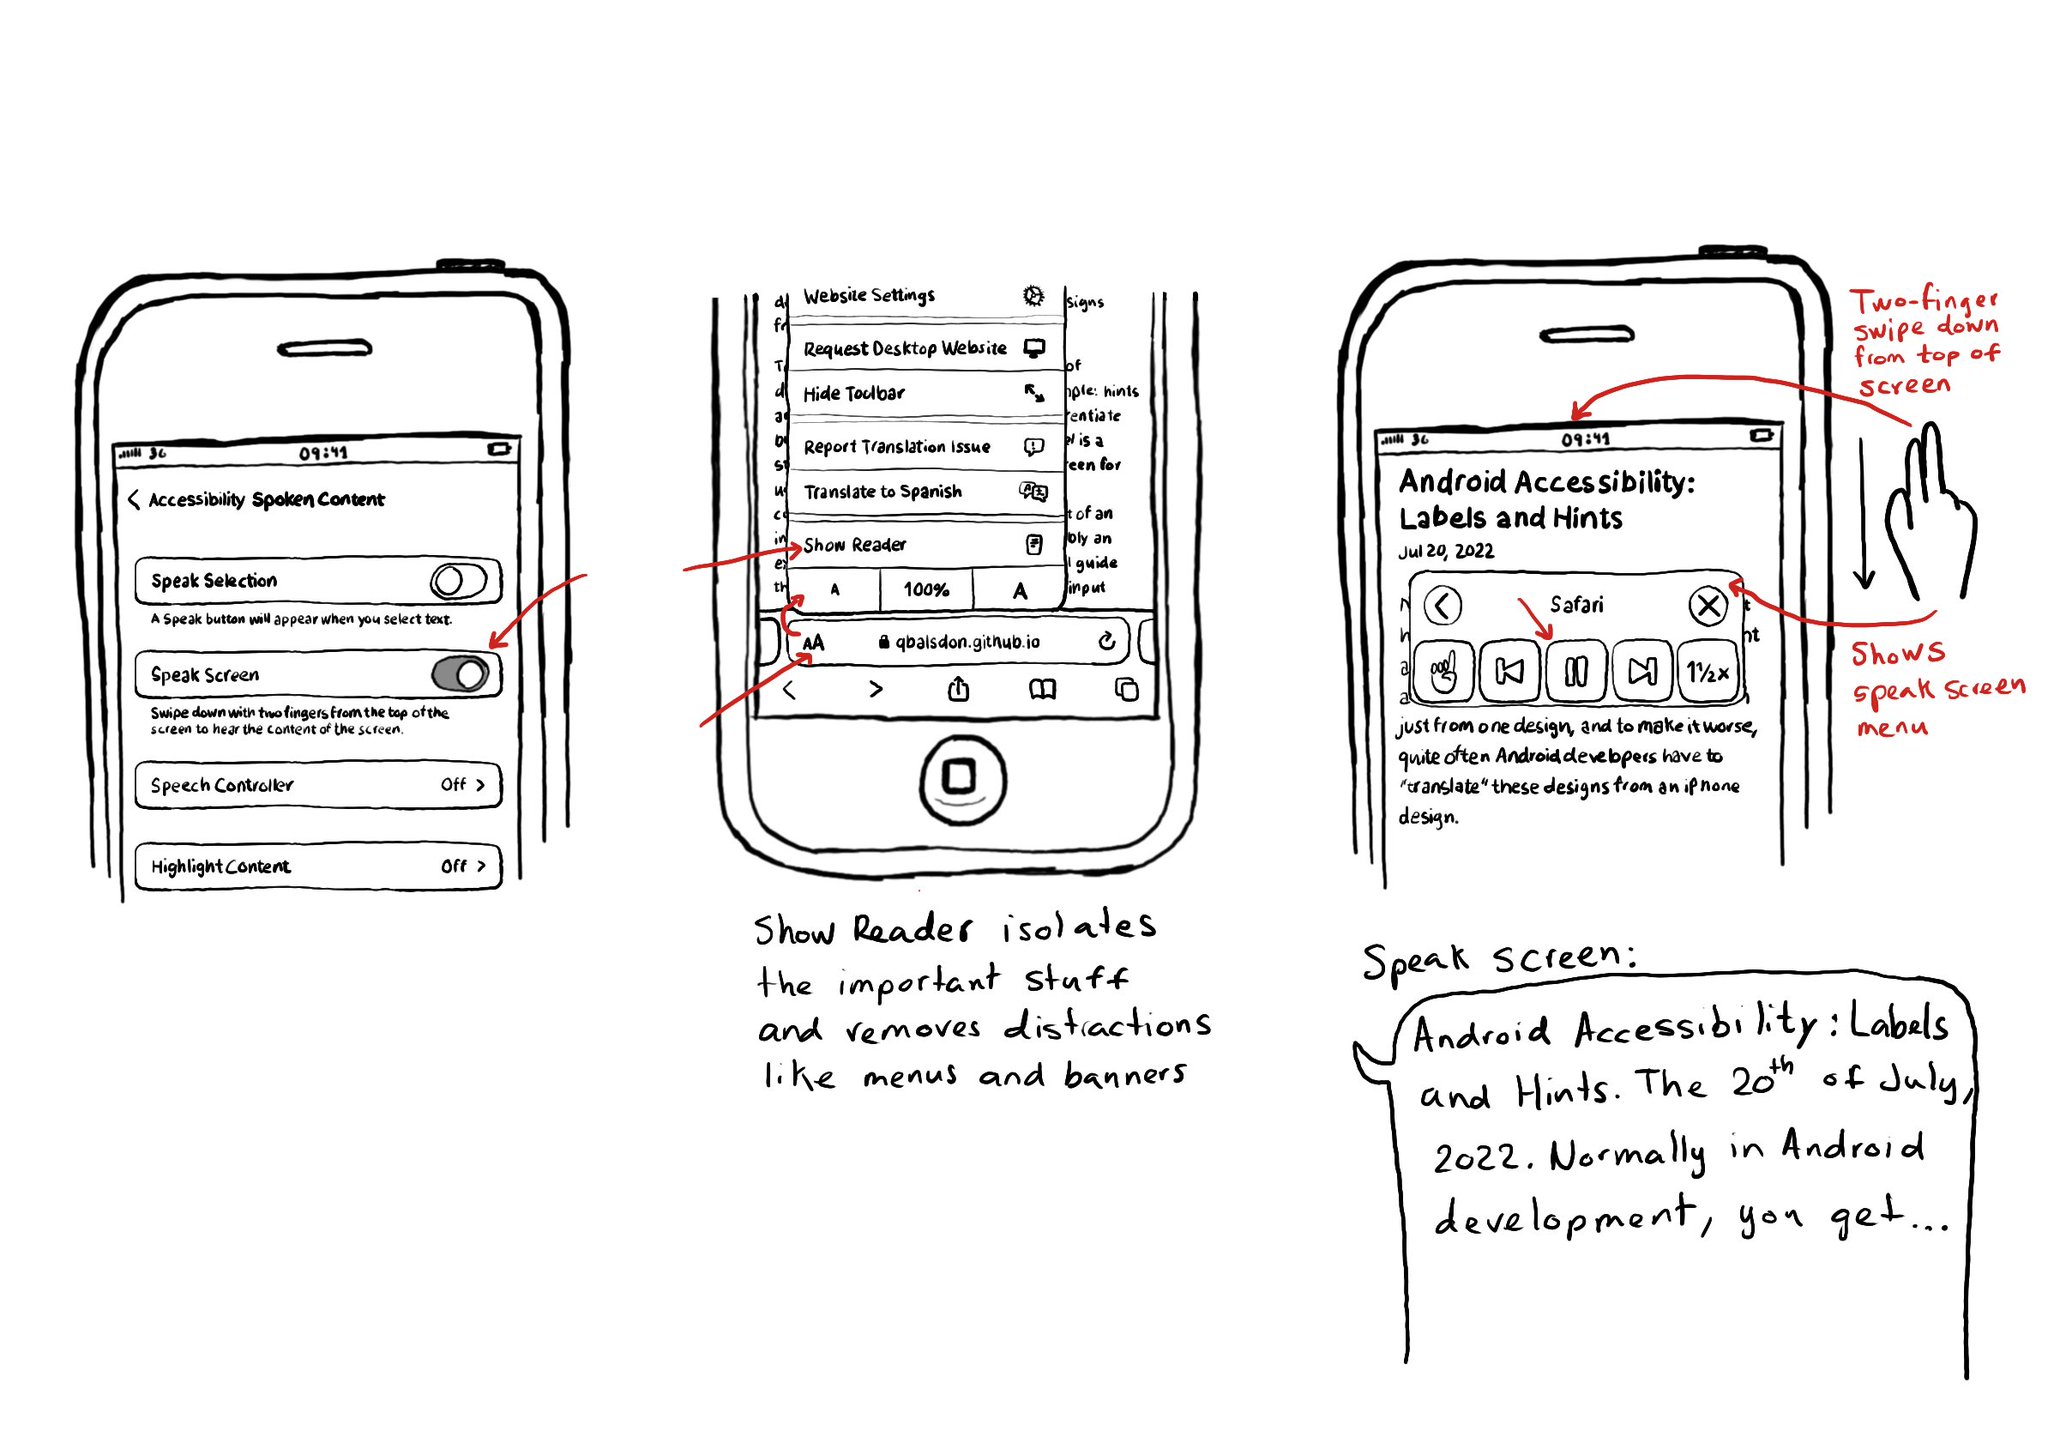 3G
09:41
Accessibility Spoken Content
Speak Selection
A Speak button will appear when you select text.
Speak Screen
Swipe down with two fingers from the top of the
screen to hear the content of the screen.
Speech Controller Off >
Highlight Content Off >
Website Settings
signs
Request Desktop Website
of
Hide Toolbar
hints
Report Translation Issue
is a
for
Translate to Spanish
of an
Show Reader
an
guide
A 100% A
input
AA qbalsdon.github.io
Show Reader isolates
the important stuff
and removes distractions
like menus and banners
Two-finger
swipe down
from top of
screen
3G
09:41
Android Accessibility:
Labels and Hints
Jul 20, 2022
Safari
1½x
Shows
speak screen
menu
just from one design, and to make it worse,
quite often Android developers have to
"translate" these designs from an iPhone
design.
Speak screen:
Android Accessibility: Labels
and Hints. The 20th of July,
2022. Normally in Android
development, you get...